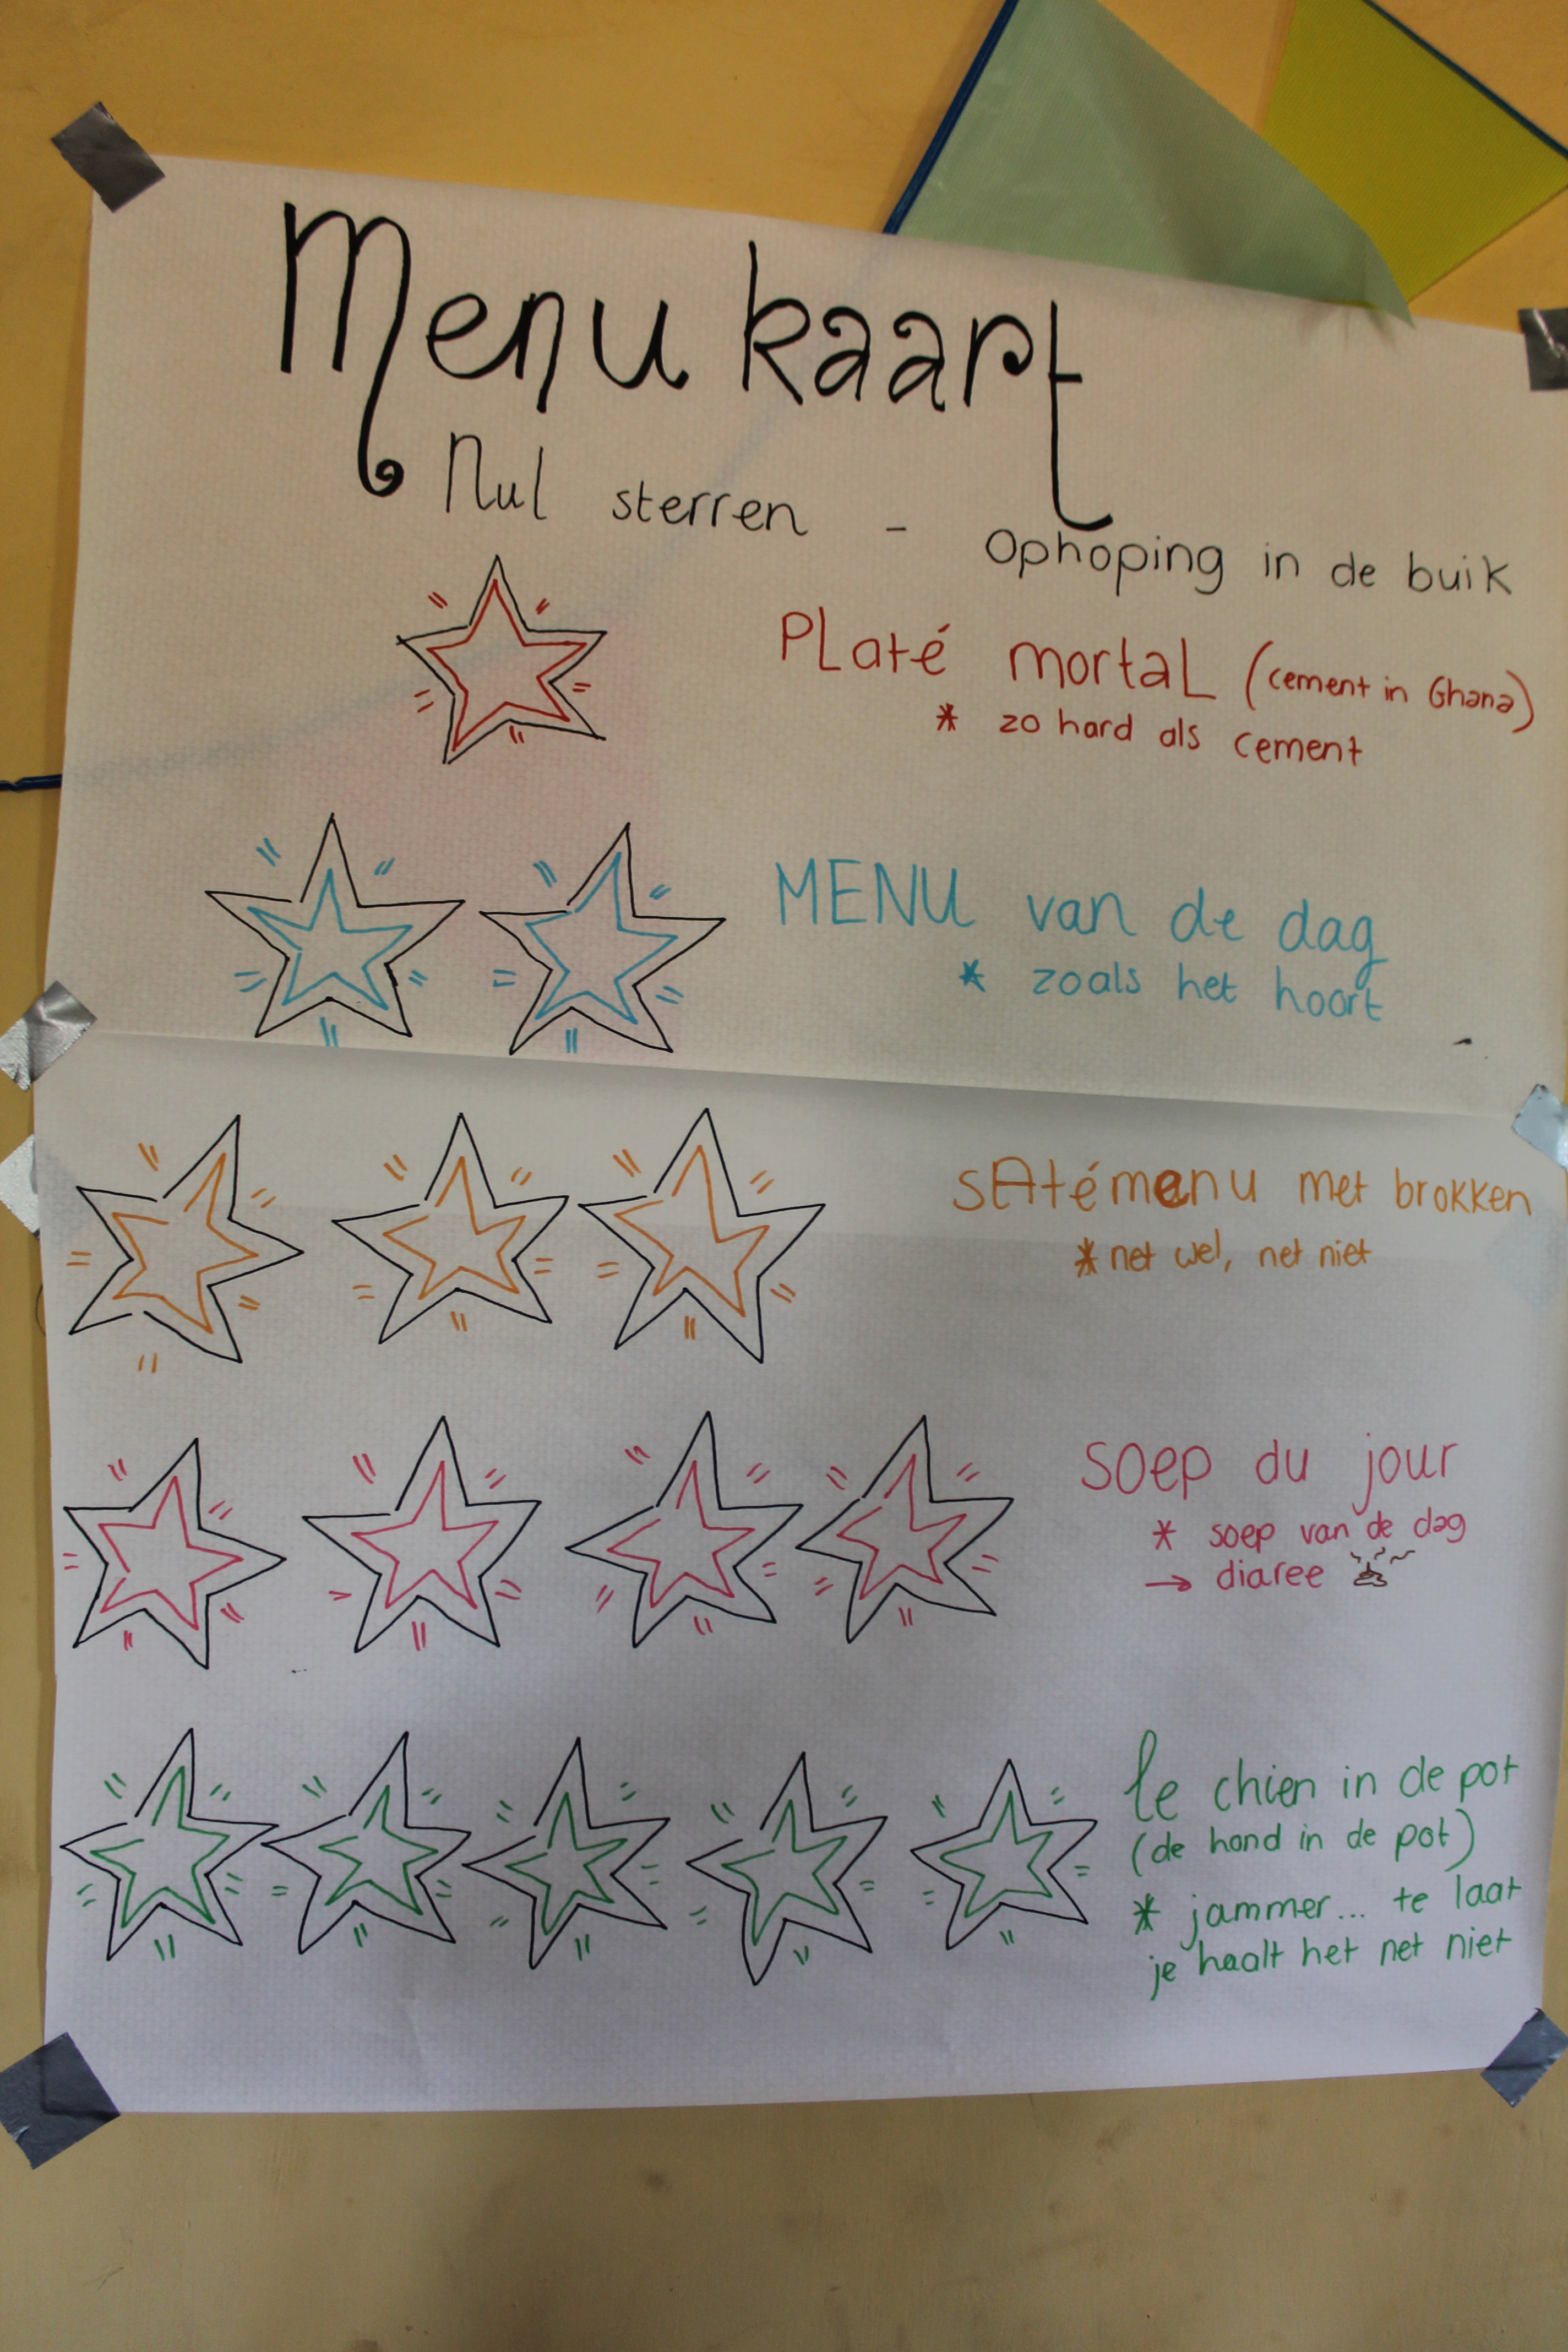 Menu kaart
Nul sterren - Ophoping in de buik
PLaté mortaL (cement in Ghana)
* zo hard als cement
MENU van de dag
* zoals het hoort
SAtémenu met brokken
* net wel, net niet
SOep du jour
* soep van de dag
→ diaree
le chien in de pot
(de hond in de pot)
* jammer... te laat
je haalt het net niet